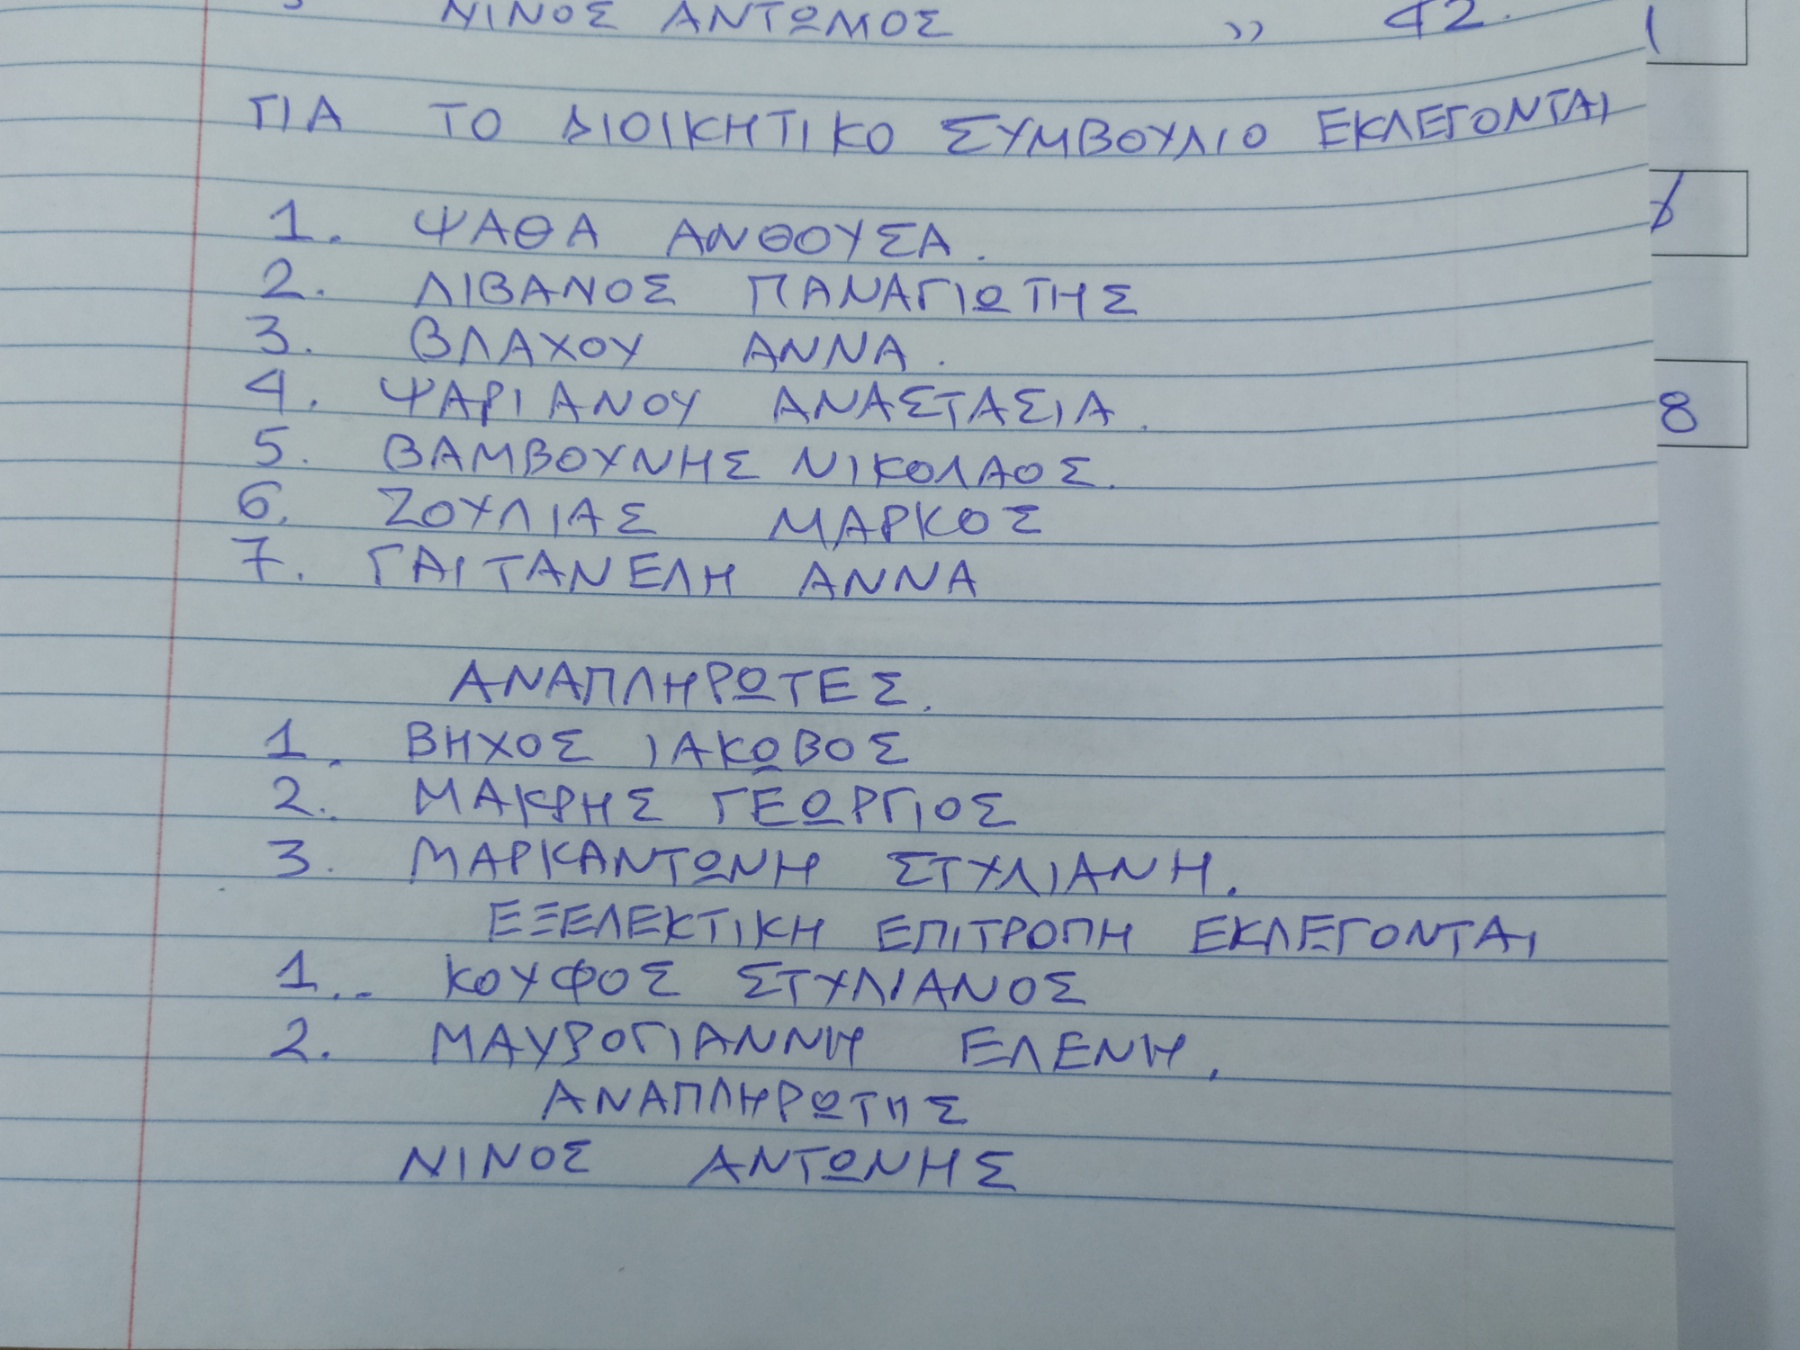 ΝΙΝΟΣ ΑΝΤΩΜΟΣ ,, 42.
ΓΙΑ ΤΟ ΔΙΟΙΚΗΤΙΚΟ ΣΥΜΒΟΥΛΙΟ ΕΚΛΕΓΟΝΤΑΙ
1. ΨΑΘΑ ΑΝΘΟΥΣΑ.
2. ΛΙΒΑΝΟΣ ΠΑΝΑΓΙΩΤΗΣ
3. ΒΛΑΧΟΥ ΑΝΝΑ.
4. ΨΑΡΙΑΝΟΥ ΑΝΑΣΤΑΣΙΑ.
8
5. ΒΑΜΒΟΥΝΗΣ ΝΙΚΟΛΑΟΣ.
6. ΖΟΥΛΙΑΣ ΜΑΡΚΟΣ
7. ΓΑΙΤΑΝΕΛΗ ΑΝΝΑ
ΑΝΑΠΛΗΡΩΤΕΣ.
1. ΒΗΧΟΣ ΙΑΚΩΒΟΣ
2. ΜΑΚΡΗΣ ΓΕΩΡΓΙΟΣ
3. ΜΑΡΚΑΝΤΩΝΗ ΣΤΥΛΙΑΝΗ.
ΕΞΕΛΕΚΤΙΚΗ ΕΠΙΤΡΟΠΗ ΕΚΛΕΓΟΝΤΑΙ
1.. ΚΟΥΦΟΣ ΣΤΥΛΙΑΝΟΣ
2. ΜΑΥΡΟΓΙΑΝΝΗ ΕΛΕΝΗ.
ΑΝΑΠΛΗΡΩΤΗΣ
ΝΙΝΟΣ ΑΝΤΩΝΗΣ